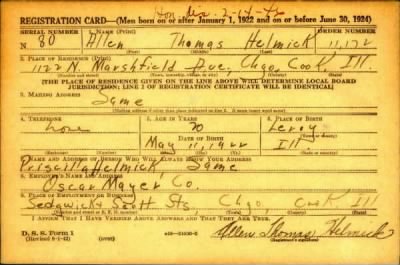 REGISTRATION CARD—(Men born on or after January 1, 1922 and on or before June 30, 1924)
SERIAL NUMBER 1. NAME (Print) ORDER NUMBER
N 80 Allen Thomas Helmick 11,172
(First) (Middle) (Last)
2. PLACE OF RESIDENCE (Print)
1122 N. Marshfield Ave, Chgo, Cook Ill
[THE PLACE OF RESIDENCE GIVEN ON THE LINE ABOVE WILL DETERMINE LOCAL BOARD
JURISDICTION; LINE 2 OF REGISTRATION CERTIFICATE WILL BE IDENTICAL]
3. MAILING ADDRESS
Same
4. TELEPHONE 5. AGE IN YEARS 6. PLACE OF BIRTH
none 20 Leroy
DATE OF BIRTH
May 11, 1922 Ill
7. NAME AND ADDRESS OF PERSON WHO WILL ALWAYS KNOW YOUR ADDRESS
Priscilla Helmick Same
8. EMPLOYER'S NAME AND ADDRESS
Oscar Mayer Co.
9. PLACE OF EMPLOYMENT OR BUSINESS
Sedgwick & Scott Sts Chgo Cook Ill
I AFFIRM THAT I HAVE VERIFIED ABOVE ANSWERS AND THAT THEY ARE TRUE.
D. S. S. Form 1
Allen Thomas Helmick
(Registrant's signature)